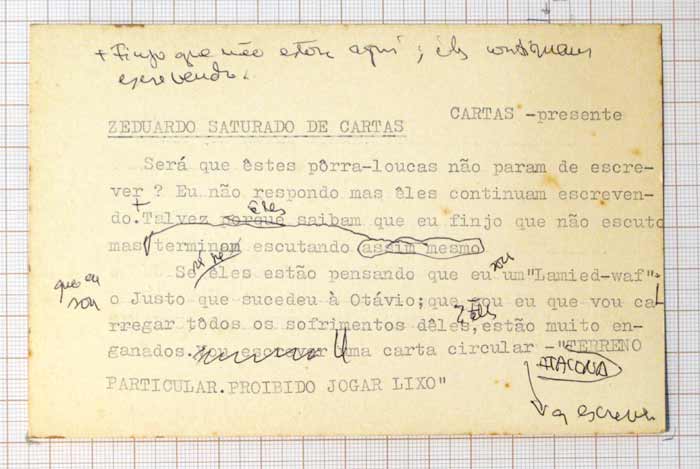 + Finjo que não estou aqui; êles continuam
escrevendo.
CARTAS -presente
ZEDUARDO SATURADO DE CARTAS
Será que êstes pôrra-loucas não param de escre-
ver ? Eu não respondo mas êles continuam escreven-
+ êles
do. Talvez porque saibam que eu finjo que não escuto
mas terminam escutando assim mesmo
Se êles estão pensando que eu um"Lamied-waf"
que eu
sou
sou
o Justo que sucedeu à Otávio; que sou eu que vou ca
rregar tôdos os sofrimentos dêles, estão muito en-
êles
ganados. Vou escrever uma carta circular -"TERRENO
ATACOU
PARTICULAR. PROIBIDO JOGAR LIXO"
escrever